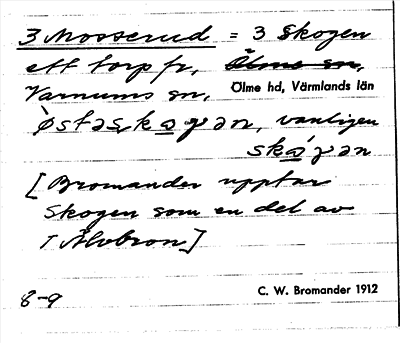 3 Mosserud = 3 Skogen
ett torp fr, Ölme sn,
Varnums sn, Ölme hd, Värmlands län
Østaskogan, vanligen
skógan
[Bromander upptar
Skogen som en del av
1 Älvbron]
8-9 C. W. Bromander 1912